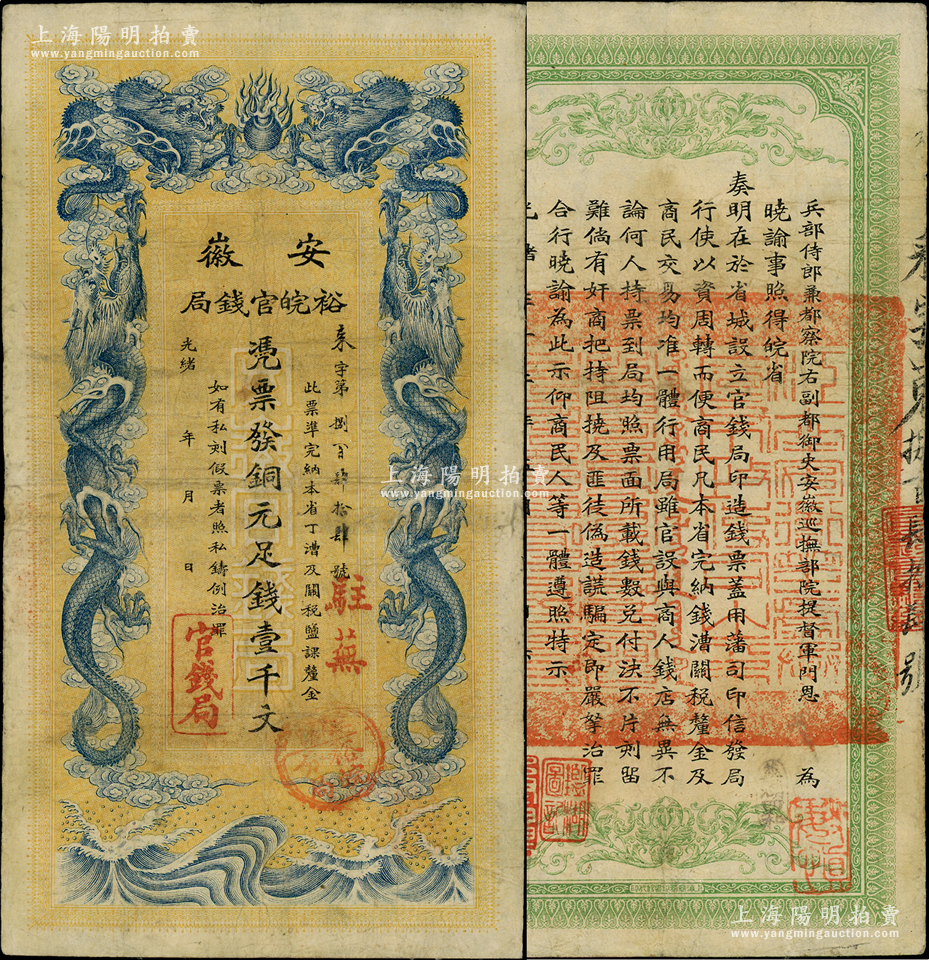 上海陽明拍賣
www.yangmingauction.com
安徽
裕皖官錢局
來字第捌百肆拾肆號
此票準完納本省丁漕及關稅鹽課釐金
憑票發銅元足錢壹千文
如有私刻假票者照私鑄例治罪
光緒 年 月 日
駐蕪
官錢局
兵部侍郎兼都察院右副都御史安徽巡撫部院提督軍門恩 為
曉諭事照得皖省
奏明在於省城設立官錢局印造錢票蓋用藩司印信發局
行使以資周轉而便商民凡本省完納錢漕關稅釐金及
商民交易均准一體行用局雖官設與商人錢店無異不
論何人持票到局均照票面所載錢數兌付決不片刻留
難倘有奸商把持阻撓及匪徒偽造謊騙定即嚴拏治罪
合行曉諭為此示仰商民人等一體遵照特示
光緒
號
上海陽明拍賣
www.yangmingauction.com
上海陽明拍賣
www.yangmingauction.com